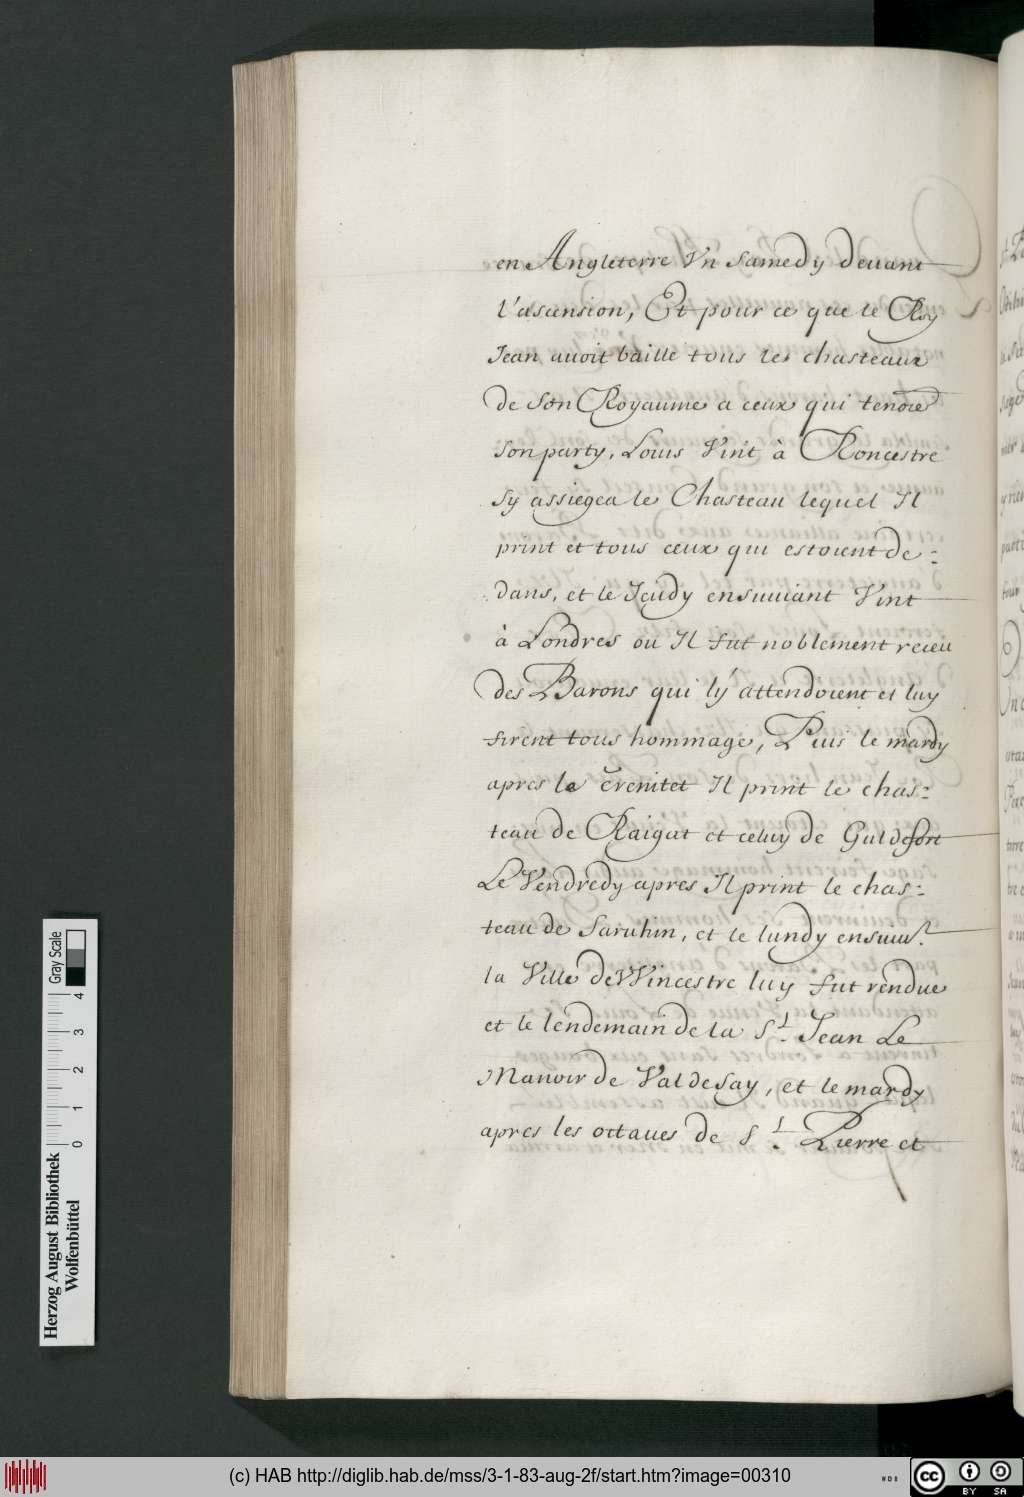 en Angleterre Vn Samedy deuant
l'ascension, Et pour ce que le Roy
Jean auoit baille tous les chasteaux
de son Royaume a ceux qui tenoiē
son party, Louis Vint à Roncestre
Sy assiegea le Chasteau lequel Il
print et tous ceux qui estoient de=
dans, et le Jeudy ensuiuant Vint
à Londres ou Il fut noblement receu
des Barons qui ly attendoient et luy
firent tous hommage, Puis le mardy
apres la trenitet Il print le chas=
teau de Raigat et celuy de Guldefort
Le Vendredy apres Il print le chas=
teau de Saruhin, et le lundy ensuiut.
la Ville de Wincestre luy fut rendue
et le lendemain de la St. Jean Le
Manoir de Valdesay, et le mardy
apres les octaues de St. Pierre et
Herzog August Bibliothek
Wolfenbüttel
0 1 2 3 4
Gray Scale
(c) HAB http://diglib.hab.de/mss/3-1-83-aug-2f/start.htm?image=00310
WDB
cc BY SA